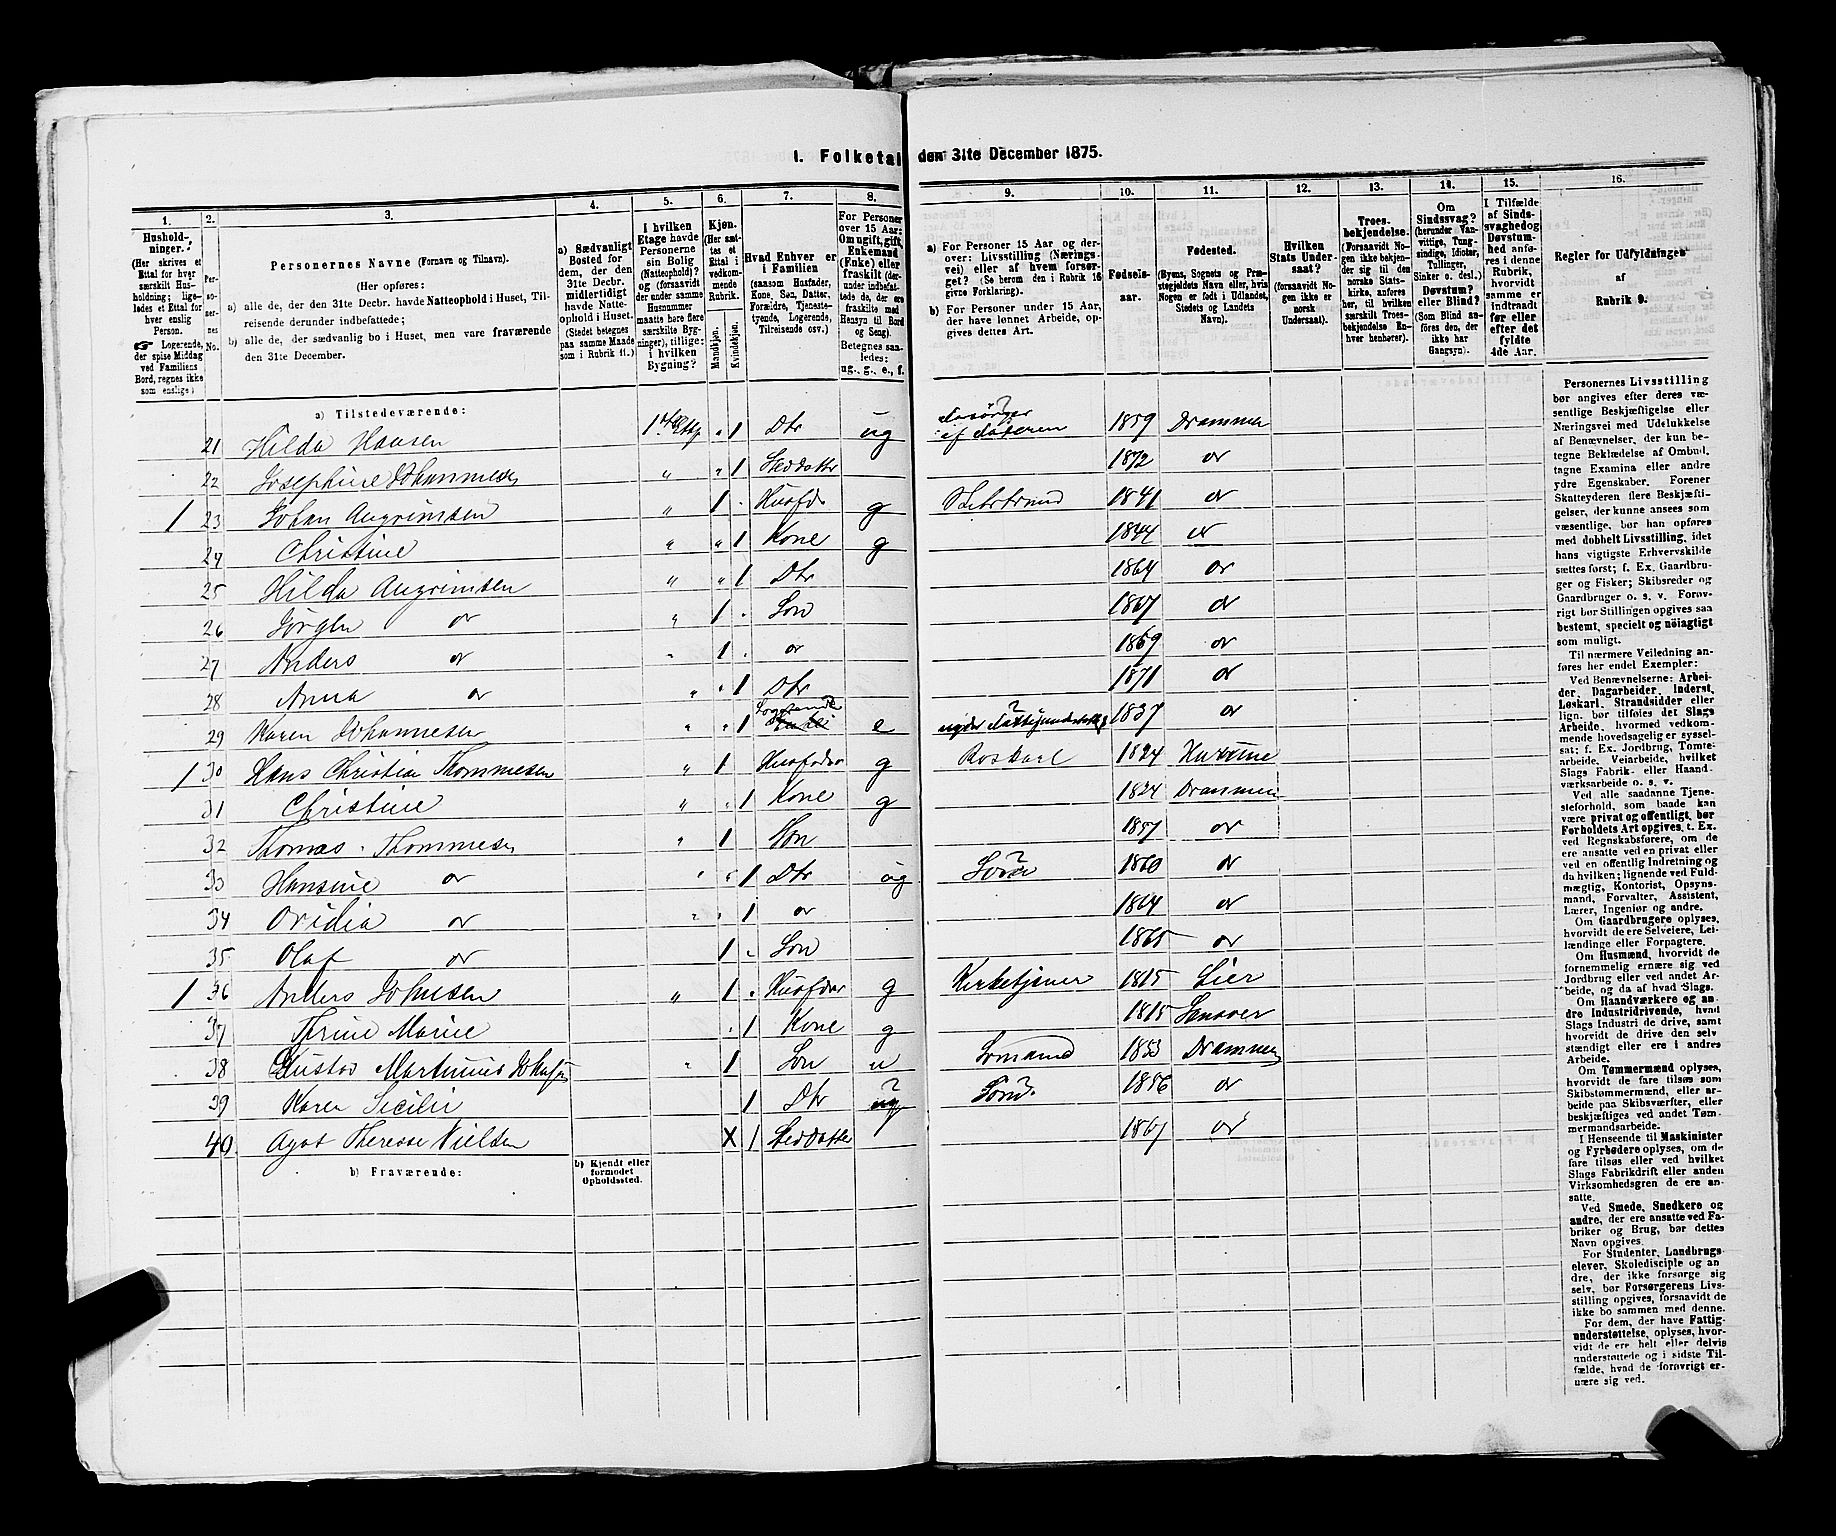 I. Folketal den 31te December 1875.
1. 2. 3. 4. 5. 6. 7. 8. 9. 10. 11. 12. 13. 14. 15. 16.
Hushold-
ninger.
(Her skrives et
Ettal for hver
særskilt Hus-
holdning; lige-
ledes et Ettal for
hver enslig
Person.
☞ Logerende,
der spise Middag
ved Familiens
Bord, regnes ikke
som enslige.)
Per-
so-
ner-
nes
No.
Personernes Navne (Fornavn og Tilnavn).
(Her opføres:
a) alle de, der den 31te Decbr. havde Natteophold i Huset, Til-
reisende derunder indbefattede;
b) alle de, der sædvanlig bo i Huset, men vare fraværende
den 31te December.
a) Sædvanligt
Bosted for
dem, der den
31te Decbr.
midlertidigt
havde Natte-
ophold i Huset.
(Stedet betegnes
paa samme Maade
som i Rubrik 11.)
I hvilken
Etage havde
Personerne
sin Bolig
(Natteophold)?
og (forsaavidt
der under samme
Husnummer
maatte høre flere
særskilte Byg-
ninger), tillige:
i hvilken
Bygning?
Kjøn.
(Her sæt-
tes et
Ettal i
vedkom-
mende
Rubrik.
Mandkjøn.
Kvindekjøn.
Hvad Enhver er
i Familien
(saasom Husfader,
Kone, Søn, Datter,
Forældre, Tjenes-
tyende, Logerende,
Tilreisende osv.)
For Personer
over 15 Aar:
Om ugift, gift,
Enkemand
(Enke) eller
fraskilt (der-
under indbefat-
tede de, der ere
fraskilte med
Hensyn til Bord
og Seng).
Betegnes saa-
ledes:
ug., g., e., f.
a) For Personer 15 Aar og der-
over: Livsstilling (Nærings-
vei) eller af hvem forsør-
get? (Se herom den i Rubrik 16
givne Forklaring).
b) For Personer under 15 Aar,
der have lønnet Arbeide, op-
gives dettes Art.
Fødsels-
aar.
Fødested.
(Byens, Sognets og Præ-
stegjeldets Navn eller, hvis
Nogen er født i Udlandet,
Stedets og Landets
Navn).
Hvilken
Stats Under-
saat?
(forsaavidt No-
gen ikke er
norsk
Undersaat).
Troes-
bekjendelse.
(Forsaavidt No-
gen ikke bekjen-
der sig til den
norske Stats-
kirke, anføres
her, til hvilken
særskilt Troes-
bekjendelse En-
hver henhører).
Om
Sindssvag?
(herunder Van-
vittige, Tung-
sindige, Idioter,
Tullinger,
Sinker o. desl.)
Døvstum?
eller Blind?
(Som Blind an-
føres den, der
ikke har
Gangsyn).
I Tilfælde
af Sinds-
svaghed og
Døvstum-
hed anfø-
res i denne
Rubrik,
hvorvidt
samme er
indtraadt
før eller
efter det
fyldte
4de Aar.
Regler for Udfyldningen
af
Rubrik 9.
a) Tilstedeværende:
21 Hilda Hansen 1 Dtr ug af Faderen 1859 Drammen
22 Josephine Johannesen " " 1 Steddatter 1872 do
1 23 Johan Angrimsen " 1 Husfdr g 1841 do
24 Christine " " 1 Kone g 1844 do
25 Hilda Angrimsen " " 1 Dtr 1864 do
26 Jørgen do " 1 Søn 1867 do
27 Anders do " 1 do 1869 do
28 Anna do " " 1 Dtr 1871 do
29 Karen Johannesen " " 1 Logerende e nyder Fattigunderst 1837 do
1 30 Hans Christian Thommesen " 1 Husfader g Roskarl 1824 Hurum
31 Christine " " 1 Kone g 1824 Drammen
32 Thomas Thommesen " 1 Søn 1857 do
33 Hansine do " " 1 Dtr ug 1860 do
34 Ovidia do " " 1 do 1864 do
35 Olaf do 1 Søn 1865 do
1 36 Anders Johnsen " 1 Husfader g Kirketjener 1815 Lier
37 Thrine Marie 1 Kone g 1815
38 Gustav Martinius Johnsen " 1 Søn u Sømand 1853 Drammen
39 Karen Sicilie 1 Dtr ug 1856 do
40. Agot Therese Nielsen X 1 Steddatter 1867 do
b) Fraværende:
b) Kjendt eller
formodet
Opholdssted.
Personernes Livsstilling
bør angives efter deres væ-
sentlige Beskjæftigelse eller
Næringsvei med Udelukkelse
af Benævnelser, der kun be-
tegne Beklædelse af Ombud,
tagne Examina eller andre
ydre Egenskaber. Forener
Skatteyderen flere Beskjæfti-
gelser, der kunne ansees som
væsentlige, bør han opføres
med dobbelt Livsstilling, idet
hans vigtigste Erhvervskilde
sættes først; f. Ex. Gaardbru-
ger og Fisker; Skibsreder og
Gaardbruger o. s. v. Forøv-
rigt bør Stillingen opgives saa
bestemt, specielt og nøiagtigt
som muligt.
Til nærmere Veiledning an-
føres her endel Exempler:
Ved Benævnelserne: Arbei-
der, Dagarbeider, Inderst,
Løskarl, Strandsidder eller
lign. bør tilføies det Slags
Arbeide, hvormed vedkom-
mende hovedsagelig er syssel-
sat; f. Ex. Jordbrug, Tomte-
arbeide, Veiarbeide, hvilket
Slags Fabrik- eller Haand-
værksarbeide o. s. v.
Ved alle saadanne Tjene-
steforhold, som baade kan
være privat og offentligt, bør
Forholdets Art opgives, t. Ex.
ved Regnskabsførere, om de
ere ansatte ved en privat eller
ved en offentlig Indretning og
da hvilken; lignende ved Fuld-
mægtig, Kontorist, Opsyns-
mand, Forvalter, Assistent,
Lærer, Ingeniør og andre.
Om Gaardbrugere oplyses,
hvorvidt de ere Selveiere, Lei-
lændinge eller Forpagtere.
Om Husmænd, hvorvidt de
fornemmelig ernære sig ved
Jordbrug eller ved andet Ar-
beide, og da af hvad Slags.
Om Haandværkere og an-
dre Industridrivende, hvad
Slags Industri de drive, samt
hvorvidt de drive den selv-
stændigt eller ere i andres
Arbeide.
Om Tømmermænd oplyses,
hvorvidt de fare tilsøs som
Skibstømmermænd, eller ar-
beide paa Skibsværfter, eller
beskjæftiges ved andet Tøm-
mermandsarbeide.
I Henseende til Maskinister
og Fyrbødere oplyses, om de
fare tilsøs eller ved hvilket
Slags Fabrikdrift eller anden
Virksomhedsgren de ere an-
satte.
Ved Smede, Snedkere og
andre, der ere ansatte ved Fa-
briker og Brug, bør dettes
Navn opgives.
For Studenter, Landbrugs-
elever, Skoledisciple og an-
dre, der ikke forsørge sig
selv, bør Forsørgerens Livs-
stilling opgives, forsaavidt de
ikke bo sammen med denne.
For dem, der have Fattig-
understøttelse, oplyses, hvor-
vidt de ere helt eller delvis
understøttede og i sidste Til-
fælde, hvad de forøvrigt er-
nære sig ved.